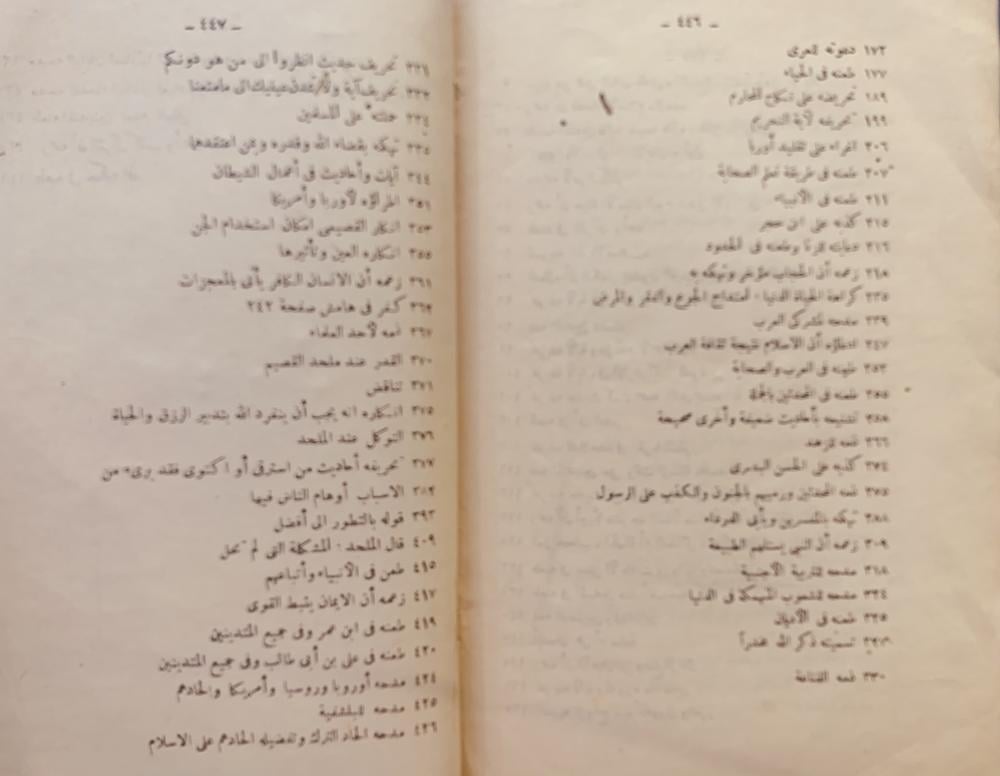 - ٤٤٦ -
١٧٢ دعوته للعرى
١٧٧ طعنه فى الحياء
١٨٩ تحريضه على نكاح المحارم
١٩٩ تحريفه لآية التحريم
٢٠٦ اغراء على تقليد أوربا
٢٠٧ طعنه فى طريقة تعلم الصحابة
٢١١ طعنه فى الأنبياء
٢١٥ كذبه على ابن حجر
٢١٦ وطعنه فى الحدود
٢٦٨ زعمه أن الحجاب وتهكه به
٢٣٥ كراهة الحياة الدنيا ، امتداح الجوع والفقر والمرض
٢٣٩ مدحه لمشركى العرب
٢٤٧ ادعاؤه أن الاسلام نتيجة ثقافة العرب
٢٥٢ طعنه فى العرب والصحابة
٢٥٥ طعنه فى المحدثين
تشنيعه بأحاديث ضعيفة وأخرى صحيحة
٢٦٦ ذمه للزهد
٢٧٤ كذبه على الحسن البصرى
ذمه المحدثين ورميهم بالجنون والكذب على الرسول
تهكه بالمفسرين وبأبى الدرداء
٣٠٩ زعمه أن النبى يستلهم الطبيعة
٣١٨ مدحه للتربية الأجنبية
٣٢٤ مدحه للشعوب المنهمكة فى الدنيا
٣٢٥ طعنه فى الأديان
تسميته ذكر الله هذراً
٣٣٠ ذمه القناعة
- ٤٤٧ -
٣٣١ تحريف حديث انظروا الى من هو دونكم
٣٣٣ تحريف آية ولا تمدن عينيك الى مامتعنا
٣٣٤ حملته على المسلمين
٣٣٥ تهكه بقضاء الله وقدره وبمن اعتقدهما
٣٤٤ آيات وأحاديث فى أعمال الشيطان
٣٥١ اطراؤه لأوربا وأمريكا
٣٥٣ انكار القصيمى امكان استخدام الجن
٣٥٥ انكاره العين وتأثيرها
٣٦١ زعمه أن الانسان الكافر يأتى بالمعجزات
٣٦٣ كفر فى هامش صفحة ٢٤٢
٣٦٧ ذمه لأحد العلماء
٣٧٠ القدر عند ملحد القصيم
٣٧١ تناقض
٣٧٥ انكاره انه يجب أن ينفرد الله بتدبير الرزق والحياة
٣٧٦ التوكل عند الملحد
٣٧٧ تحريفه أحاديث من استرقى أو اكتوى فقد برىء من
٣٨٢ الاسباب أوهام الناس فيها
٣٩٣ قوله بالتطور الى أفضل
٤٠٩ قال الملحد : المشكلة التى لم تحل
٤١٥ طعن فى الأنبياء وأتباعهم
٤١٧ زعمه أن الايمان يثبط القوى
٤١٩ طعنه فى ابن عمر وفى جميع المتدينين
٤٢٠ طعنه فى على بن أبى طالب وفى جميع المتدينين
٤٢٤ مدحه أوروبا وروسيا وأمريكا والحادهم
٤٢٥ مدحه للبلشفية
٤٢٦ مدحه الحاد الترك وتفضيله الحادهم على الاسلام